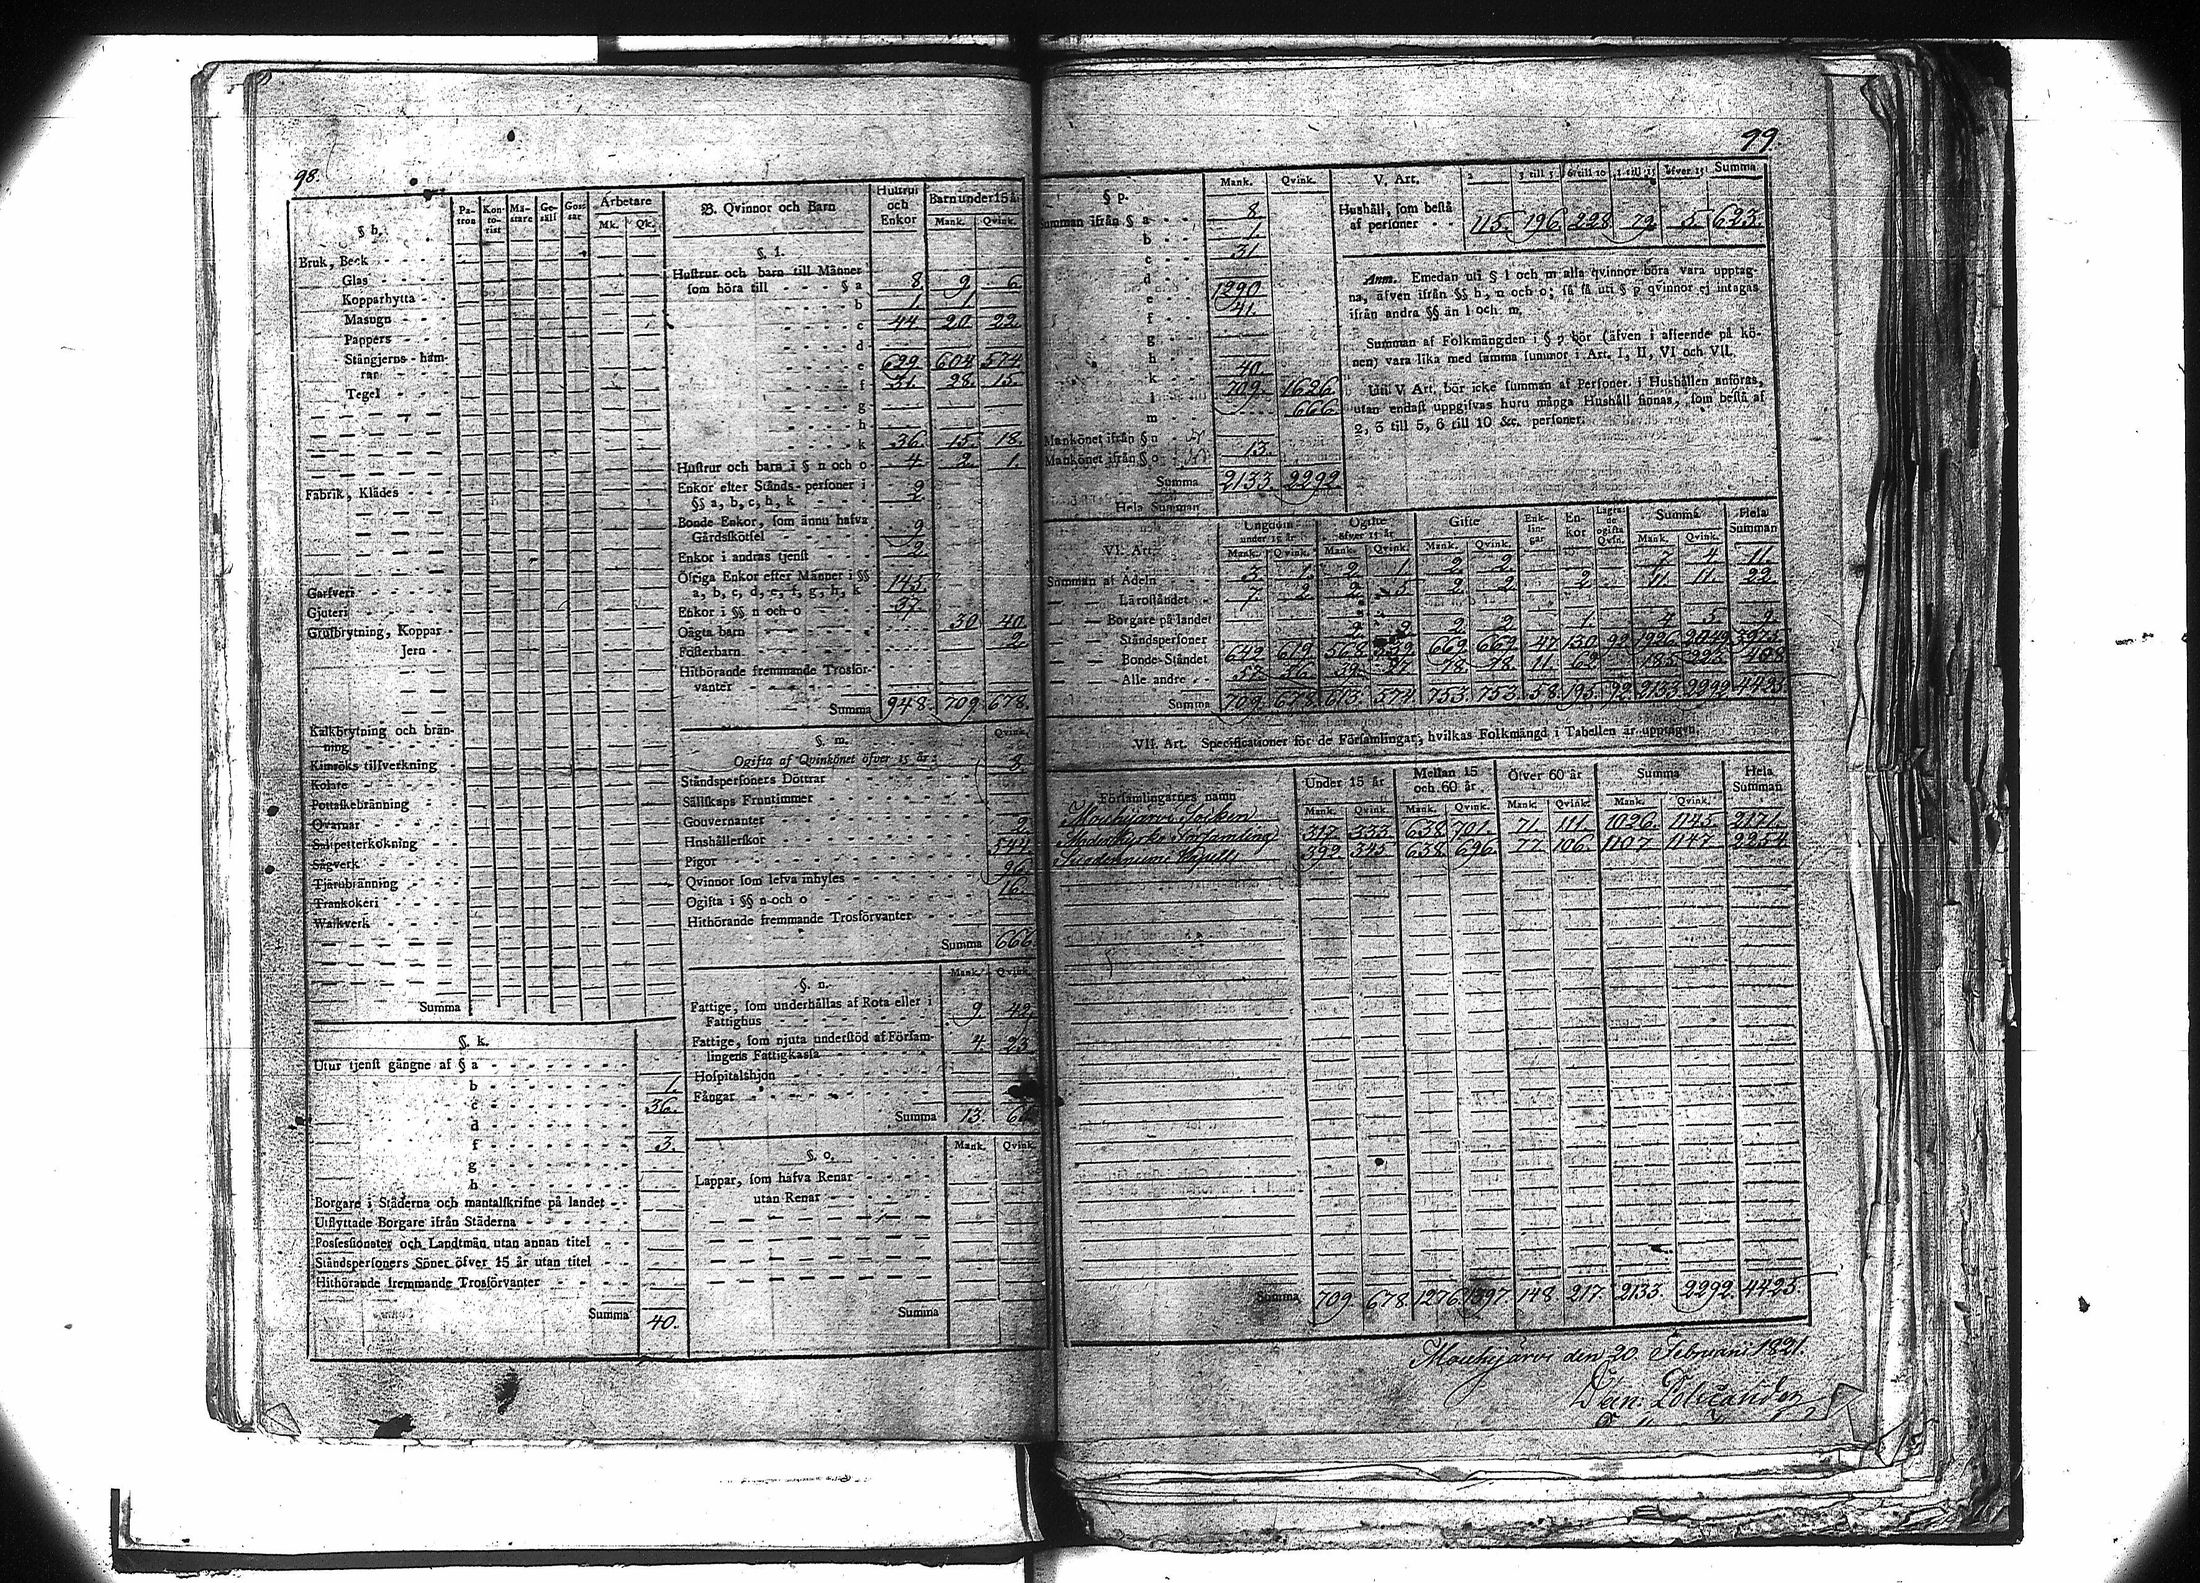 98.
§ h.
Pa- tron Kon- to- rist Mä- stare Ge- säll Gos- sar Arbetare
Mk. Qk.
Bruk, Beck
Glas
Kopparhytta
Masugn
Pappers
Stångjerns-ham-
rar
Tegel
Fabrik, Klädes
Garfveri
Gjuteri
Grufbrytning, Koppar
Jern
Kalkbrytning och brän-
ning
Kimröks tillverkning
Kolare
Pottaskebränning
Qvarnar
Saltpetterkokning
Sågverk
Tjärubränning
Trankokeri
Walkverk
Summa
§. k.
Utur tjenst gångne af § a
b 1.
c 36.
d
f 3.
g
h
Borgare i Städerna och mantalskrifne på landet
Utflyttade Borgare ifrån Städerna
Possessionater och Landtmän utan annan titel
Ståndspersoners Söner öfver 15 år utan titel
Hithörande fremmande Trosförvanter
Summa 40.
B. Qvinnor och Barn Hustrur och Enkor Barn under 15 år
Mank. Qvink.
§. l.
Hustrur och barn till Männer
som höra till § a 8. 9. 6.
b 1. 1.
c 44. 20. 22.
d
e 629. 604. 574.
f 31. 28. 15.
g
h
k 36. 15. 18.
Hustrur och barn i § n och o 4. 2. 1.
Enkor efter Stånds-personer i
§§ a, b, c, h, k 2
Bonde Enkor, som ännu hafva
Gårdsskötsel 9
Enkor i andras tjenst 2
Öfriga Enkor efter Männer i §§
a, b, c, d, e, f, g, h, k 145.
Enkor i §§ n och o 37.
Oägta barn 30. 40.
Fosterbarn 2.
Hithörande fremmande Trosför-
vanter
Summa 948. 709. 678.
§. m. Qvink.
Ogifta af Qvinkönet öfver 15 år:
Ståndspersoners Döttrar 8.
Sällskaps Fruntimmer
Gouvernanter
Hushållerskor 2.
Pigor 544
Qvinnor som lefva inhyses 96.
Ogifta i §§ n och o 16.
Hithörande fremmande Trosförvanter
Summa 666
§. n. Mank. Qvink.
Fattige, som underhållas af Rota eller i
Fattighus 9 42.
Fattige, som njuta understöd af Försam-
lingens Fattigkassa 4 23.
Hospitalshjon
Fångar
Summa 13.
§. o. Mank. Qvink.
Lappar, som hafva Renar
utan Renar
Summa
99.
§ p. Mank. Qvink.
Summan ifrån § a 8.
b 1.
c 31
d
e 1290.
f 41.
g
h
k 40.
l 709. 1626.
m 666.
Mankönet ifrån § n 13.
Mankönet ifrån § o
Summa 2133. 2292
Hela Summan
V. Art. 2 3 till 5 6 till 10 11 till 15 öfver 15 Summa
Hushåll, som bestå
af personer 115. 196. 228 79. 5. 623.
Anm. Emedan uti § l och m alla qvinnor böra vara upptag-
na, äfven ifrån §§ h, n och o; så få uti § p qvinnor ej intagas
ifrån andra §§ än l och m.
Summan af Folkmängden i § p bör (äfven i afseende på kö-
nen) vara lika med samma summor i Art. I, II, VI och VII.
Uti V Art. bör icke summan af Personer i Hushållen anföras,
utan endast uppgifvas huru många Hushåll finnas, som bestå af
2, 3 till 5, 6 till 10 &c. personer.
VI. Art. Ungdom under 15 år Ogifte öfver 15 år Gifte Enk- lin- gar En- kor Summa Hela Summan
Mank. Qvink. Mank. Qvink. Mank. Qvink. Mank. Qvink.
Summan af Adeln 3. 1. 2. 1. 2. 2. 7. 4. 11.
Läroståndet 7. 2 2. 5 2. 2. 2. 11. 11. 22.
Borgare på landet
Ståndspersoner 2. 2 2. 2. 1. 4. 5. 9.
Bonde-Ståndet 642. 619. 568. 669. 669. 47. 130. 92. 1926. 2049. 3975.
Alle andre 57. 56. 39. 27 78. 78. 11. 62. 185. 223. 408
Summa 709. 678. 613. 574. 753. 753. 58. 195. 92. 2133. 2292. 4425.
VII. Art. Specificationer för de Församlingar, hvilkas Folkmängd i Tabellen är upptagen.
Församlingarnes namn Under 15 år Mellan 15 och 60 år Öfver 60 år Summa Hela Summan
Mank. Qvink. Mank. Qvink. Mank. Qvink. Mank. Qvink.
Mouhijärvi Socken
Moderkyrko Församling 317. 333. 638. 701. 71. 111. 1026. 1145. 2171.
Suodenniemi Kapell 392. 345. 638. 696. 77. 106. 1107. 1147. 2254.
Summa 709. 678. 1276. 1397. 148. 217. 2133. 2292. 4425.
Mouhijärvi den 20. Februarii 1821.